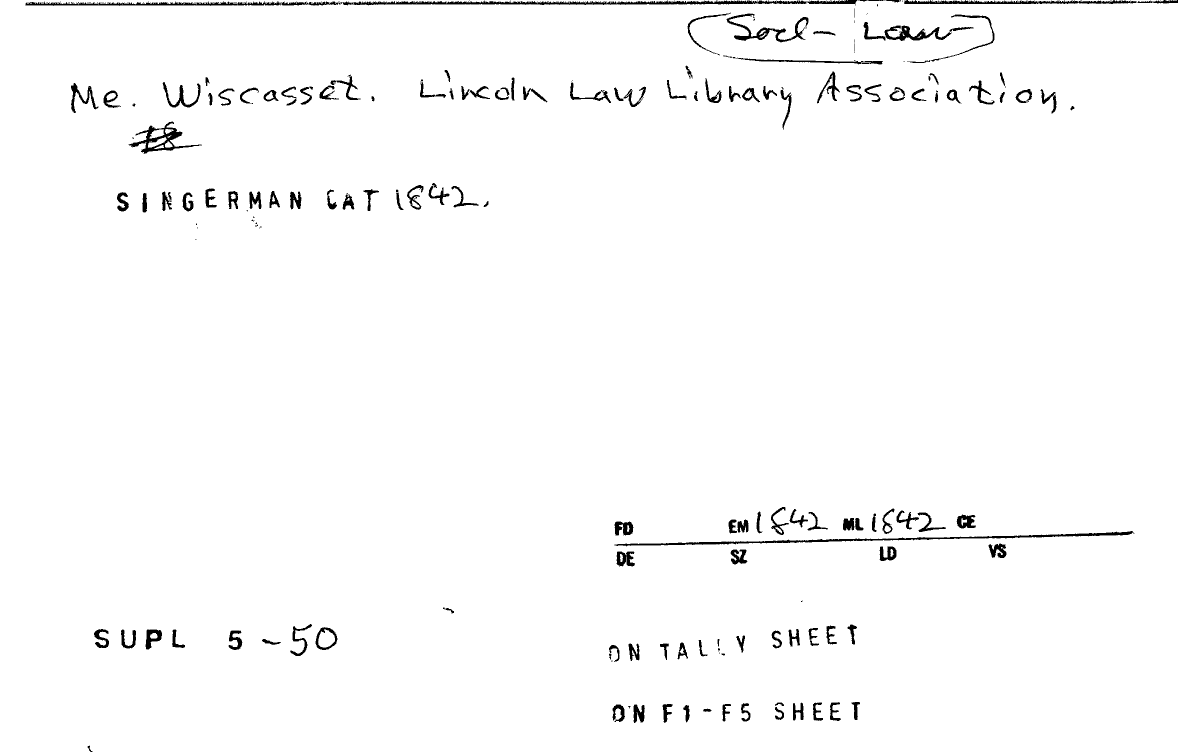 Socl-
Me. Wiscasset. Lincoln Law Library Association.
18
SINGERMAN CAT 1842.
FD EM 1842 ML 1842 CE
DE SZ LD VS
SUPL 5-50
ON TALLY SHEET
ON F1-F5 SHEET